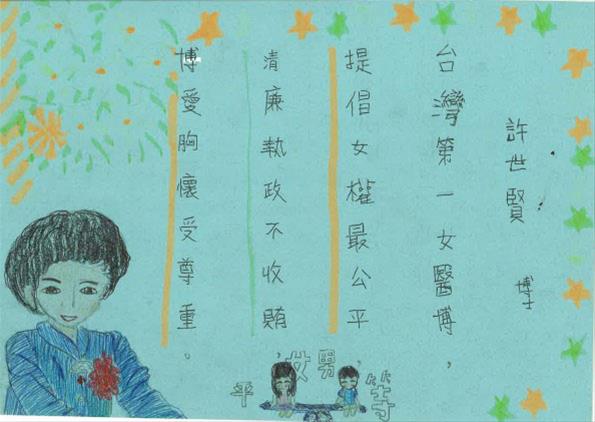 許世賢 博士
台灣第一女醫博，
提倡女權最公平，
清廉執政不收賄，
博愛胸懷受尊重。
男女平等